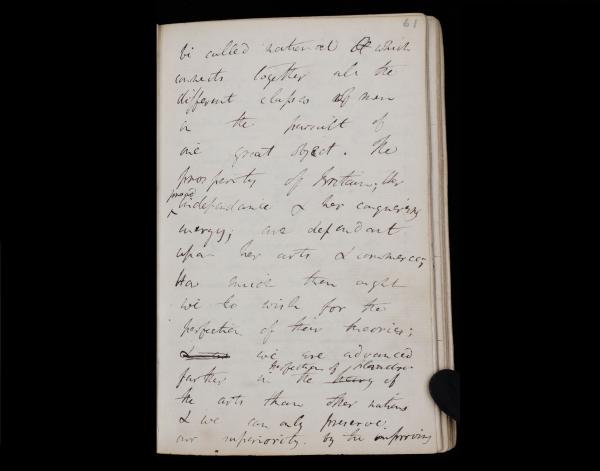 61
be called national & which
connects together all the
different classes of men
in the pursuit of
one great object. The
prosperity of Britain, her
proud
independance & her conquering
energy; are dependant
upon her arts & commerce;
How much then ought
we to wish for the
perfection of their theories;
& we are advanced
perfection of
farther in the theory of
the arts than other nations
& we can only preserve
our superiority. by the improving